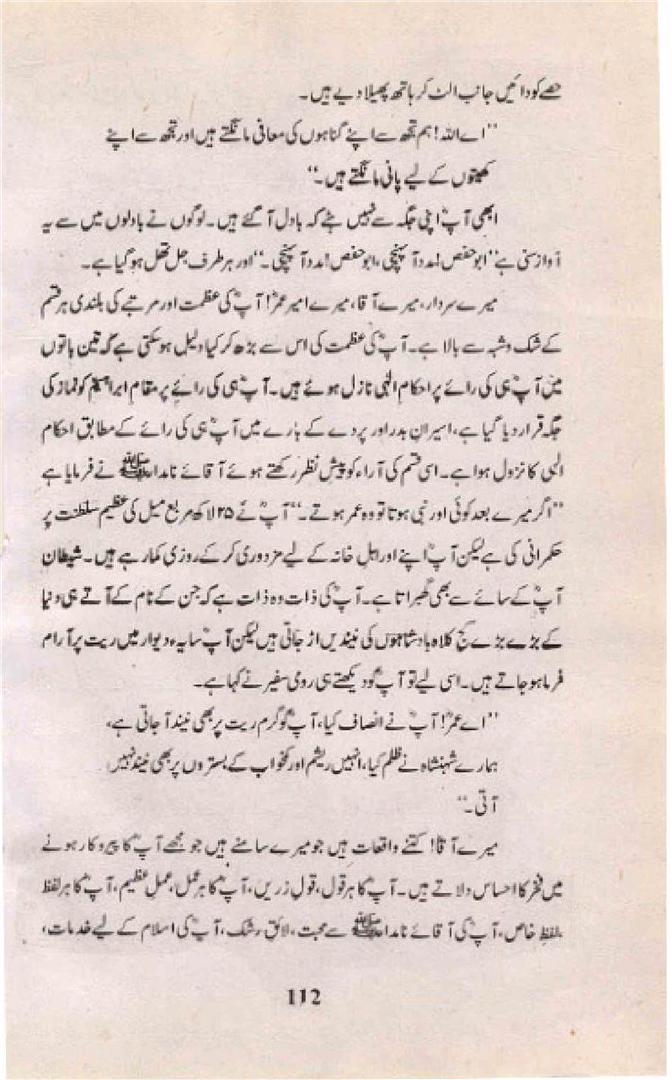 حصے کو دائیں جانب الٹ کر ہاتھ پھیلا دیے ہیں۔
”اے اللہ! ہم تجھ سے اپنے گناہوں کی معافی مانگتے ہیں اور تجھ سے اپنے
کھیتوں کے لیے پانی مانگتے ہیں۔“
ابھی آپؓ اپنی جگہ سے نہیں ہٹے کہ بادل آ گئے ہیں۔ لوگوں نے بادلوں میں سے یہ
آواز سنی ہے ”ابو حفص! مدد آ پہنچی، ابو حفص! مدد آ پہنچی۔“ اور ہر طرف جل تھل ہو گیا ہے۔
میرے سردار، میرے آقا، میرے امیر عمرؓ! آپؓ کی عظمت اور مرتبے کی بلندی ہر قسم
کے شک و شبہ سے بالا ہے۔ آپؓ کی عظمت کی اس سے بڑھ کر کیا دلیل ہو سکتی ہے کہ تین باتوں
میں آپؓ ہی کی رائے پر احکامِ الٰہی نازل ہوئے ہیں۔ آپؓ ہی کی رائے پر مقام ابراہیمؑ کو نماز کی
جگہ قرار دیا گیا ہے، اسیرانِ بدر اور پردے کے بارے میں آپؓ ہی کی رائے کے مطابق احکام
الٰہی کا نزول ہوا ہے۔ اسی قسم کی آراء کو پیش نظر رکھتے ہوئے آقائے نامدارﷺ نے فرمایا ہے
”اگر میرے بعد کوئی اور نبی ہوتا تو وہ عمر ہوتے۔“ آپؓ نے ۲۵ لاکھ مربع میل کی عظیم سلطنت پر
حکمرانی کی ہے لیکن آپؓ اپنے اور اہلِ خانہ کے لیے مزدوری کر کے روزی کما رہے ہیں۔ شیطان
آپؓ کے سائے سے بھی گھبراتا ہے۔ آپؓ کی ذات وہ ذات ہے کہ جن کے نام کے آتے ہی دنیا
کے بڑے بڑے کج کلاہ بادشاہوں کی نیندیں اڑ جاتی ہیں لیکن آپؓ سایۂ دیوار میں ریت پر آرام
فرما ہو جاتے ہیں۔ اسی لیے تو آپؓ کو دیکھتے ہی رومی سفیر نے کہا ہے۔
”اے عمرؓ! آپؓ نے انصاف کیا، آپؓ کو گرم ریت پر بھی نیند آ جاتی ہے،
ہمارے شہنشاہ نے ظلم کیا، انہیں ریشم اور کمخواب کے بستروں پر بھی نیند نہیں
آتی۔“
میرے آقا! کتنے واقعات ہیں جو میرے سامنے ہیں جو مجھے آپؓ کا پیروکار ہونے
میں فخر کا احساس دلاتے ہیں۔ آپؓ کا ہر قول، قولِ زریں، آپؓ کا ہر عمل، عملِ عظیم، آپؓ کا ہر لفظ
لفظِ خاص، آپؓ کی آقائے نامدارﷺ سے محبت، لائق رشک، آپؓ کی اسلام کے لیے خدمات،
112